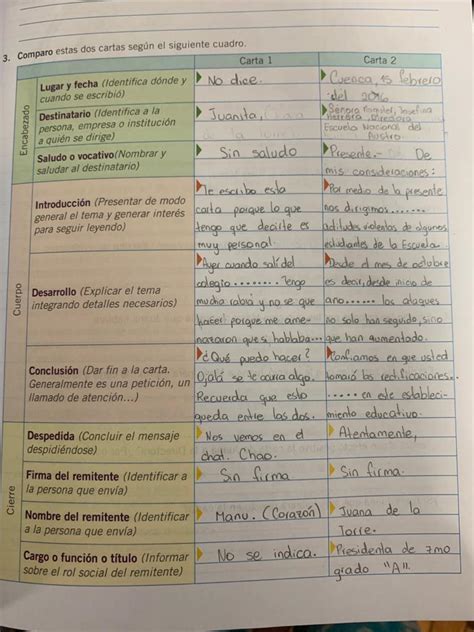 3. Comparo estas dos cartas según el siguiente cuadro.
Carta 1
Carta 2
Encabezado
Lugar y fecha (Identifica dónde y
cuando se escribió)
No dice.
Cuenca, 15 febrero
del 2016
Destinatario (Identifica a la
persona, empresa o institución
a quién se dirige)
Juanita,
Señora
Josefina
Herrera, Directora
Escuela Nacional del
Austro
Saludo o vocativo(Nombrar y
saludar al destinatario)
Sin saludo
Presente.- De
mis consideraciones:
Cuerpo
Introducción (Presentar de modo
general el tema y generar interés
para seguir leyendo)
Te escribo esta
carta porque lo que
tengo que decirte es
muy personal.
Por medio de la presente
nos dirigimos.......
actitudes violentas de algunos
estudiantes de la Escuela
Desarrollo (Explicar el tema
integrando detalles necesarios)
Ayer cuando salí del
colegio......... Tengo
mucha rabia y no se que
hacer! porque me ame-
nazaron que si hablaba...
Desde el mes de octubre
es decir, desde inicio de
ano...... los ataques
no solo han seguido, sino
que han aumentado.
Conclusión (Dar fin a la carta.
Generalmente es una petición, un
llamado de atención...)
¿Qué puedo hacer?
Ojalá se te ocurra algo.
Recuerda que esto
queda entre las dos.
Confiamos en que usted
tomará las rectificaciones..
..... en este estableci-
miento educativo.
Cierre
Despedida (Concluir el mensaje
despidiéndose)
Nos vemos en el
chat. Chao.
Atentamente,
Firma del remitente (Identificar a
la persona que envía)
Sin firma
Sin firma.
Nombre del remitente (Identificar
a la persona que envía)
Manu. (Corazón)
Juana de la
Torre.
Cargo o función o título (Informar
sobre el rol social del remitente)
No se indica.
Presidenta de 7mo
grado "A".